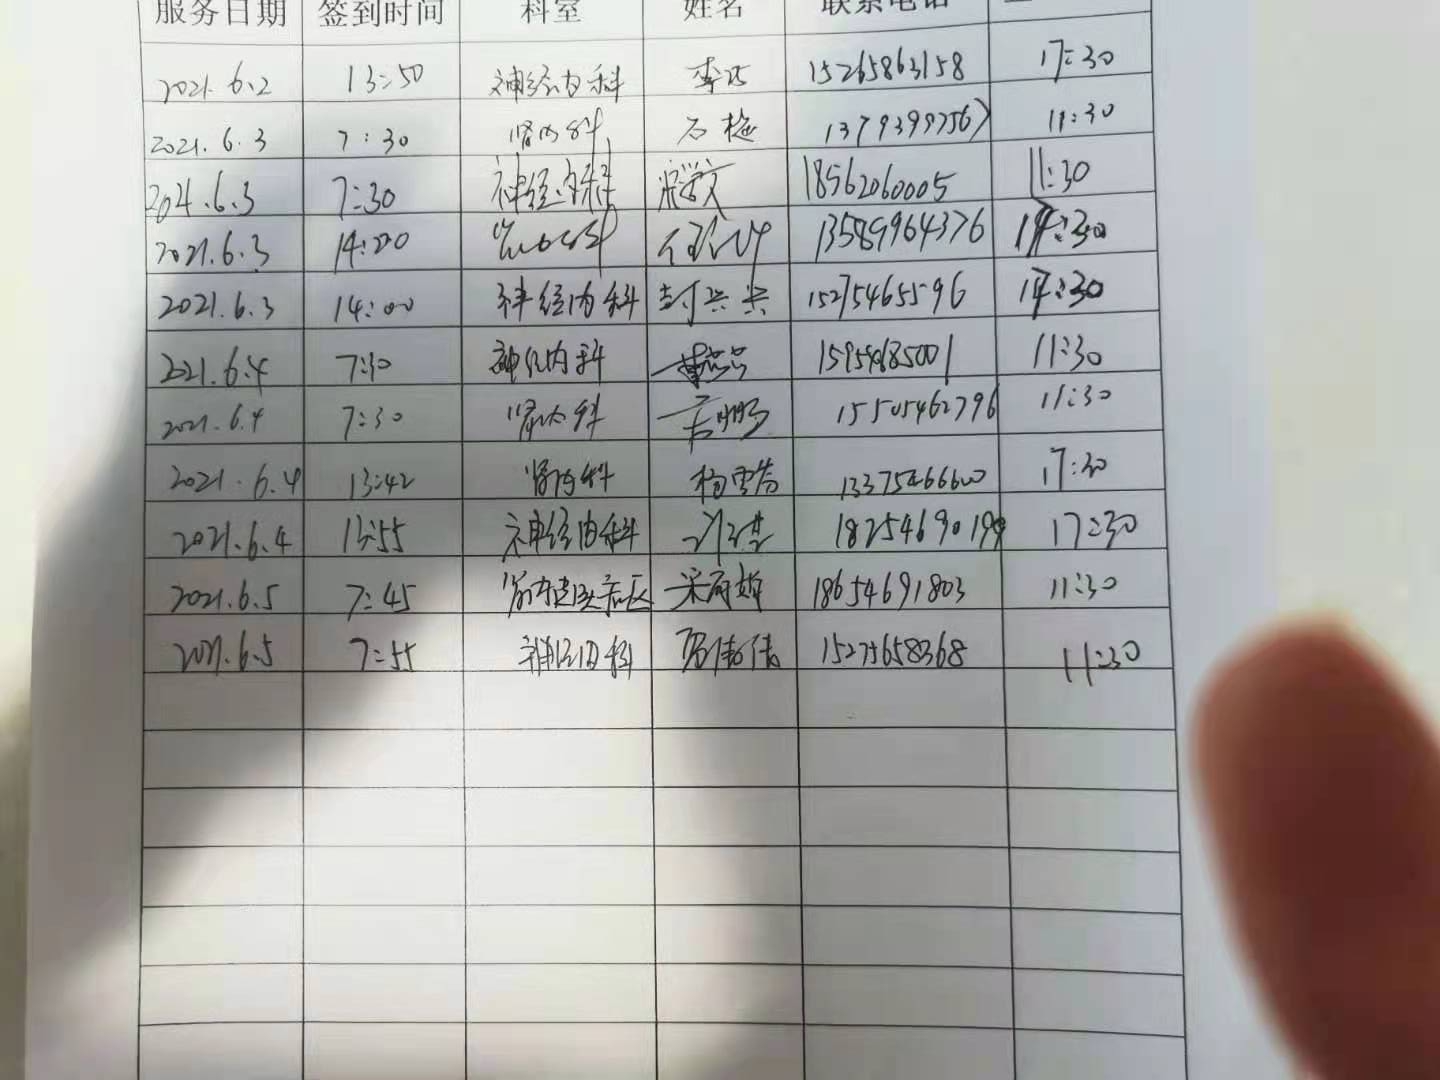 服务日期 签到时间 科室 姓名 联系电话
2021.6.2 13:50 神经内科 李 15265863158 17:30
2021.6.3 7:30 肾内科 石 11:30
2021.6.3 7:30 神经内科 18562060005 11:30
2021.6.3 14:00 肾内科 13589964376 17:30
2021.6.3 14:00 神经内科 封兴兴 15275465596 17:30
2021.6.4 7:30 神经内科 15954685001 11:30
2021.6.4 7:30 肾内科 15505462796 11:30
2021.6.4 13:42 肾内科 杨雪 13375466600 17:30
2021.6.4 13:55 神经内科 18254690199 17:30
2021.6.5 7:45 宋 18654691803 11:30
2021.6.5 7:55 神经内科 伟伟 15275658368 11:30